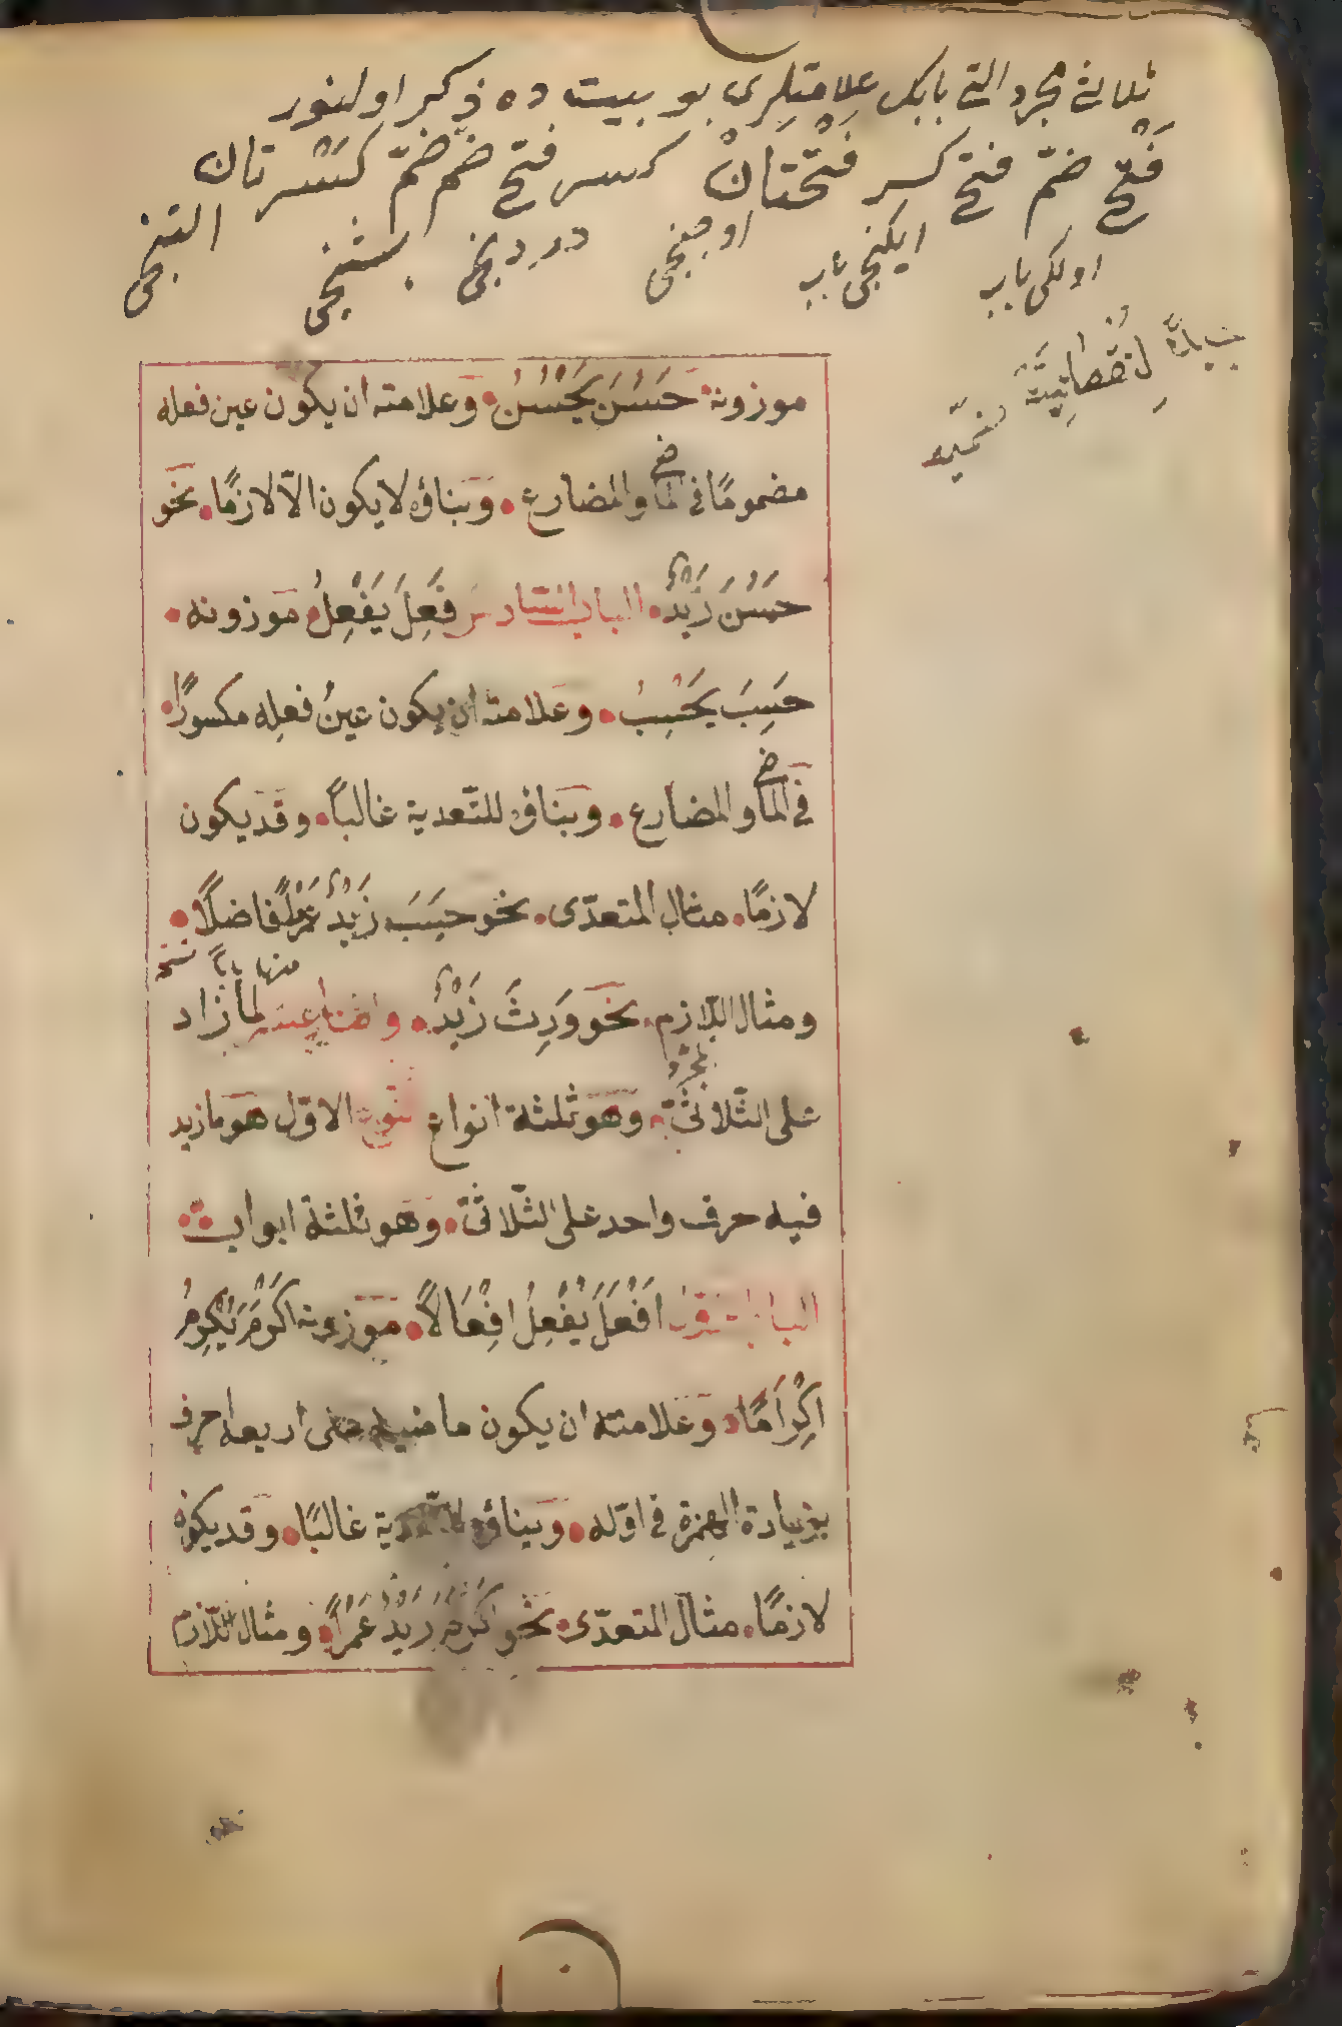 ثلاثى مجرد التى بابك علامتلرى بو بيت ده ذكر اولنور
فَتْحُ ضمّ فتح كسر فَتْحَتَانْ كسر فتح ضم ضمّ كَسْرتان
اولكى باب ايكنجى باب اوجنجى دردنجى بشنجى التنجى
موزونه حَسُنَ يَحْسُنُ وعلامته ان يكون عين فعله
مضمومًا فى الماضى والمضارع وبناؤه لا يكون الّا لازمًا نحو
حَسُنَ زَيْدٌ الباب السّادس فَعِلَ يَفْعِلُ موزونه
حَسِبَ يَحْسِبُ وعلامته ان يكون عينُ فعلِه مكسورًا
فى الماضى والمضارع وبناؤه للتّعدية غالباً وقد يكون
لازمًا مثال المتعدّى نحو حسِبَ زَيْدٌ عَمْرًا فاضلًا
منها بابًا نسخه
ومثال اللّازم نحو وَرِثَ زَيْدٌ واثنا عشر لما زاد
المجرد
على الثّلاثىّ وهو ثلثة انواع النّوع الاوّل هو ما زيد
فيه حرف واحد على الثّلاثىّ وهو ثلثة ابواب
الباب الاوّل اَفْعَلَ يُفْعِلُ اِفْعَالًا موزونه اَكْرَمَ يُكْرِمُ
اِكْرَامًا وعلامته ان يكون ماضيه على اربعة احرف
بزيادة الهمزة فى اوّله وبناؤه للتّعدية غالبًا وقد يكون
لازمًا مثال المتعدّى نحو اَكْرَمَ زَيْدٌ عَمْرًا ومثال اللّازم